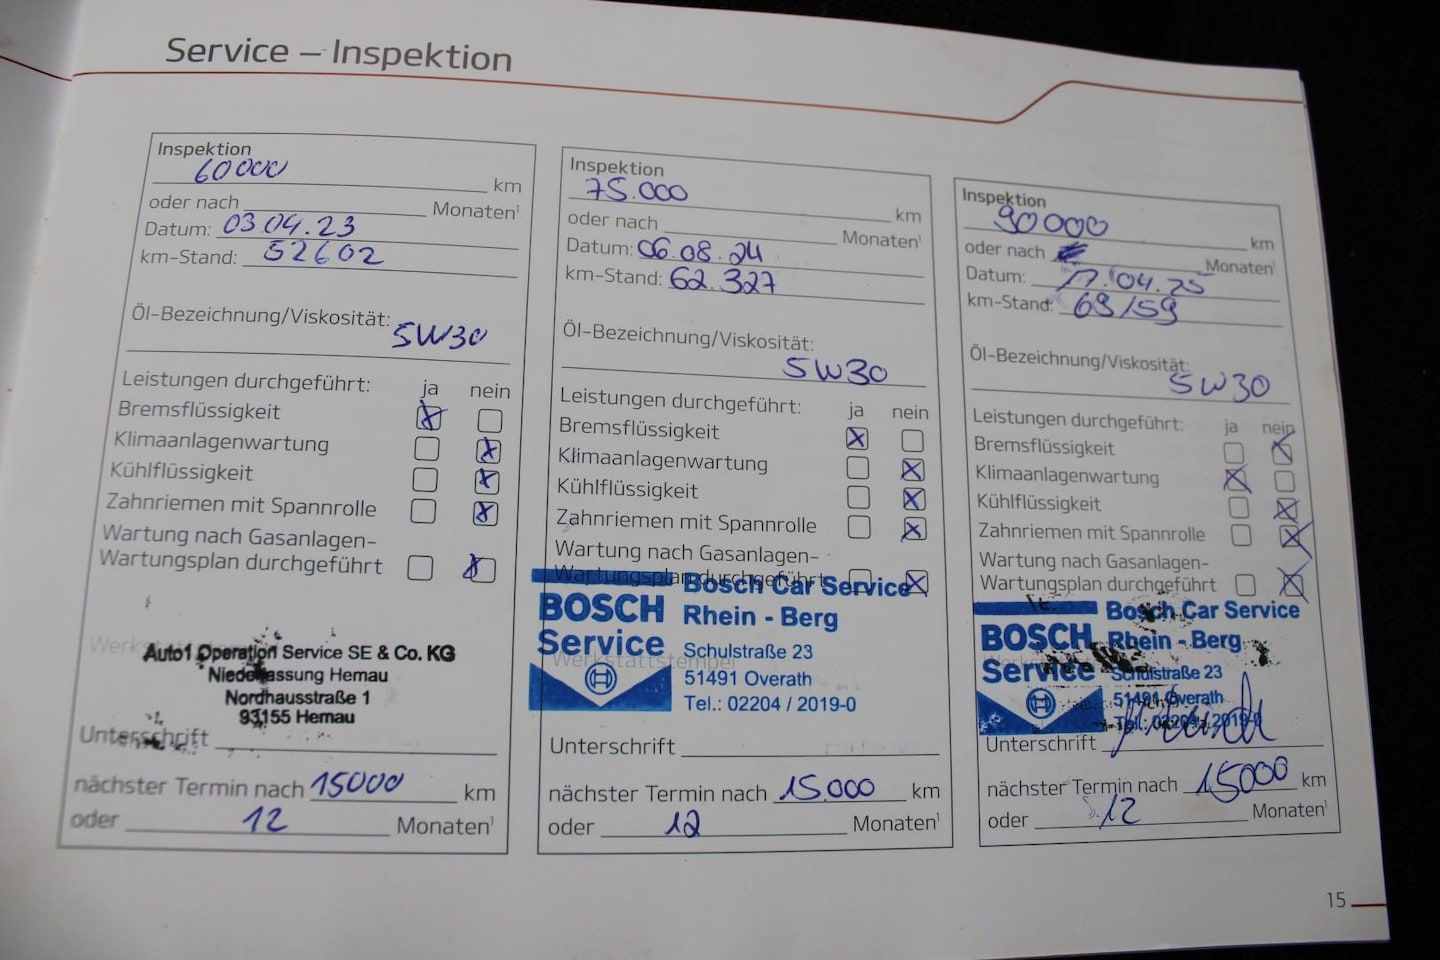 Service – Inspektion
Inspektion
60000 km
oder nach Monaten¹
Datum: 03.04.23
km-Stand: 52602
Öl-Bezeichnung/Viskosität:
5W30
Leistungen durchgeführt: ja nein
Bremsflüssigkeit
Klimaanlagenwartung
Kühlflüssigkeit
Zahnriemen mit Spannrolle
Wartung nach Gasanlagen-
Wartungsplan durchgeführt
Auto1 Operation Service SE & Co. KG
Niederlassung Hemau
Nordhausstraße 1
93155 Hemau
Unterschrift
nächster Termin nach 15000 km
oder 12 Monaten¹
Inspektion
75.000 km
oder nach Monaten¹
Datum: 06.08.24
km-Stand: 62.327
Öl-Bezeichnung/Viskosität:
5W30
Leistungen durchgeführt: ja nein
Bremsflüssigkeit
Klimaanlagenwartung
Kühlflüssigkeit
Zahnriemen mit Spannrolle
Wartung nach Gasanlagen-
Wartungsplan durchgeführt
BOSCH
Service
Bosch Car Service
Rhein - Berg
Werkstattstempel
Schulstraße 23
51491 Overath
Tel.: 02204 / 2019-0
Unterschrift
nächster Termin nach 15.000 km
oder 12 Monaten¹
Inspektion
90000 km
oder nach Monaten¹
Datum: 17.04.25
km-Stand: 69159
Öl-Bezeichnung/Viskosität:
5W30
Leistungen durchgeführt: ja nein
Bremsflüssigkeit
Klimaanlagenwartung
Kühlflüssigkeit
Zahnriemen mit Spannrolle
Wartung nach Gasanlagen-
Wartungsplan durchgeführt
BOSCH
Service
Bosch Car Service
Rhein - Berg
Schulstraße 23
51491 Overath
Tel.: 02204 / 2019-0
Unterschrift
nächster Termin nach 15000 km
oder 12 Monaten¹
15